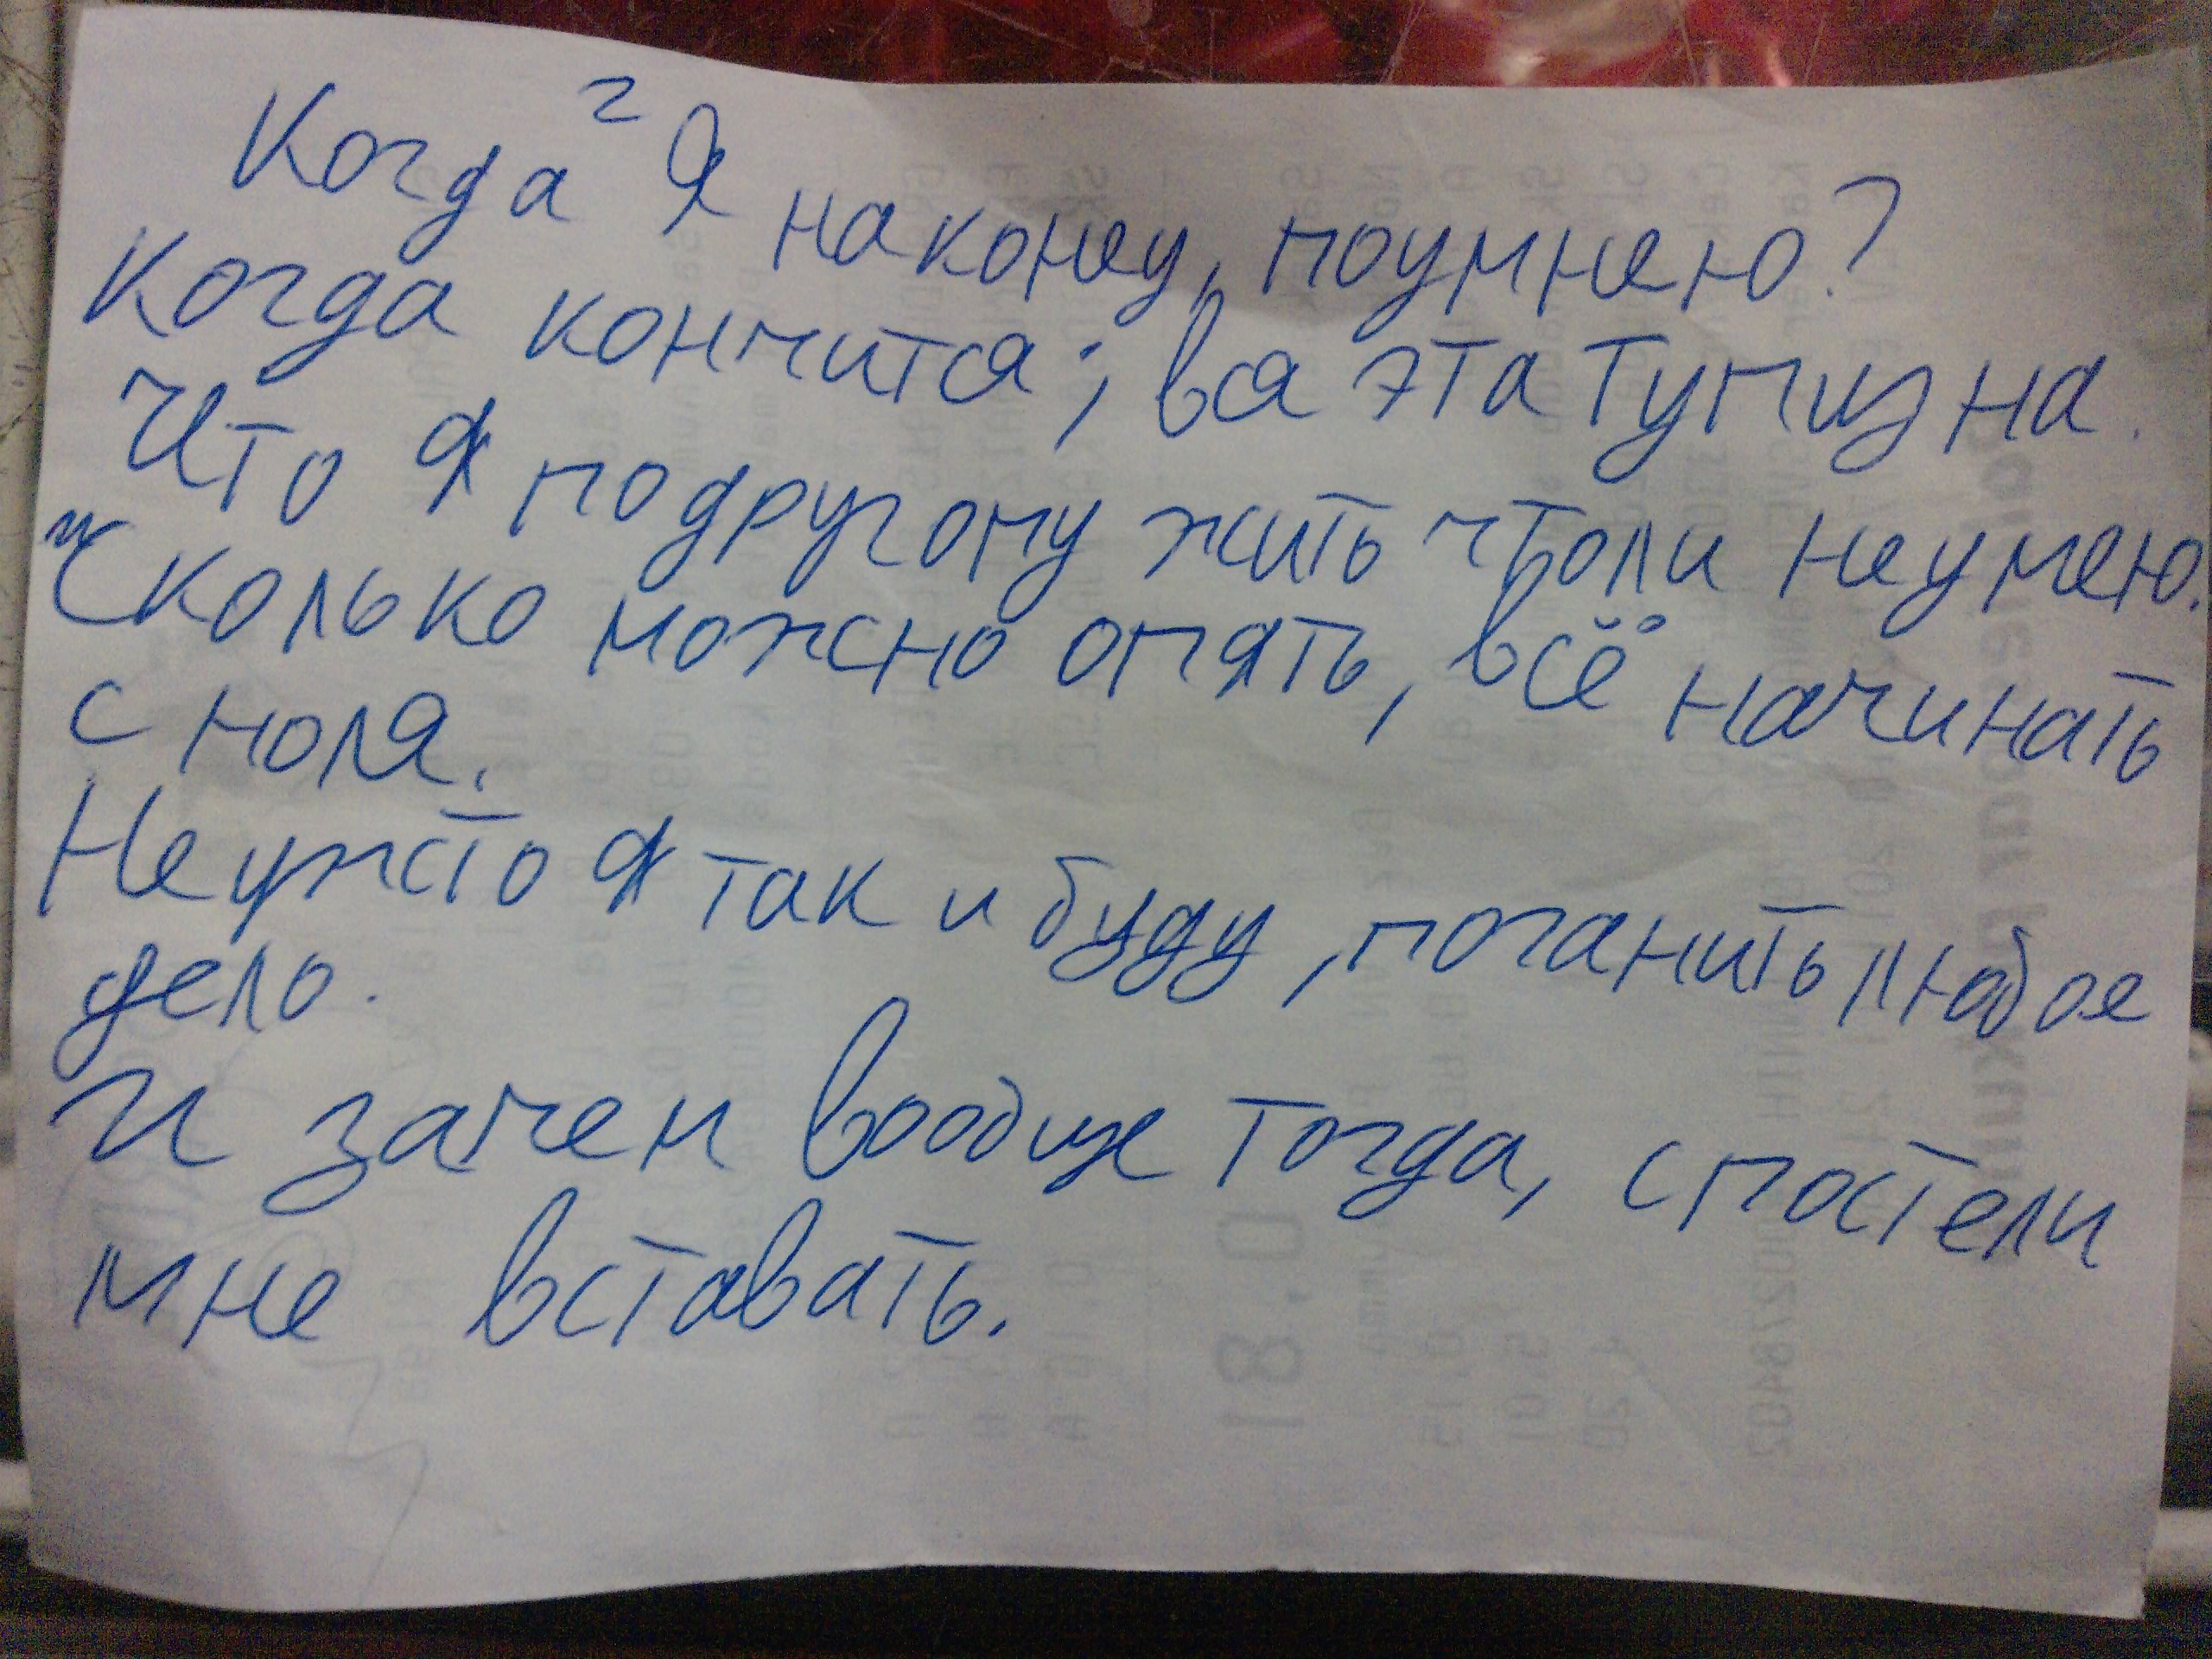 Когда г я наконец, поумнею?
Когда кончится; вся эта тупизна.
Что я подругому жить чтоли неумею.
и Сколько можно опять, всё начинать
с ноля.
Неужсто я так и буду, поганить любое
дело.
И зачем вообще тогда, спостели
мне вставать.